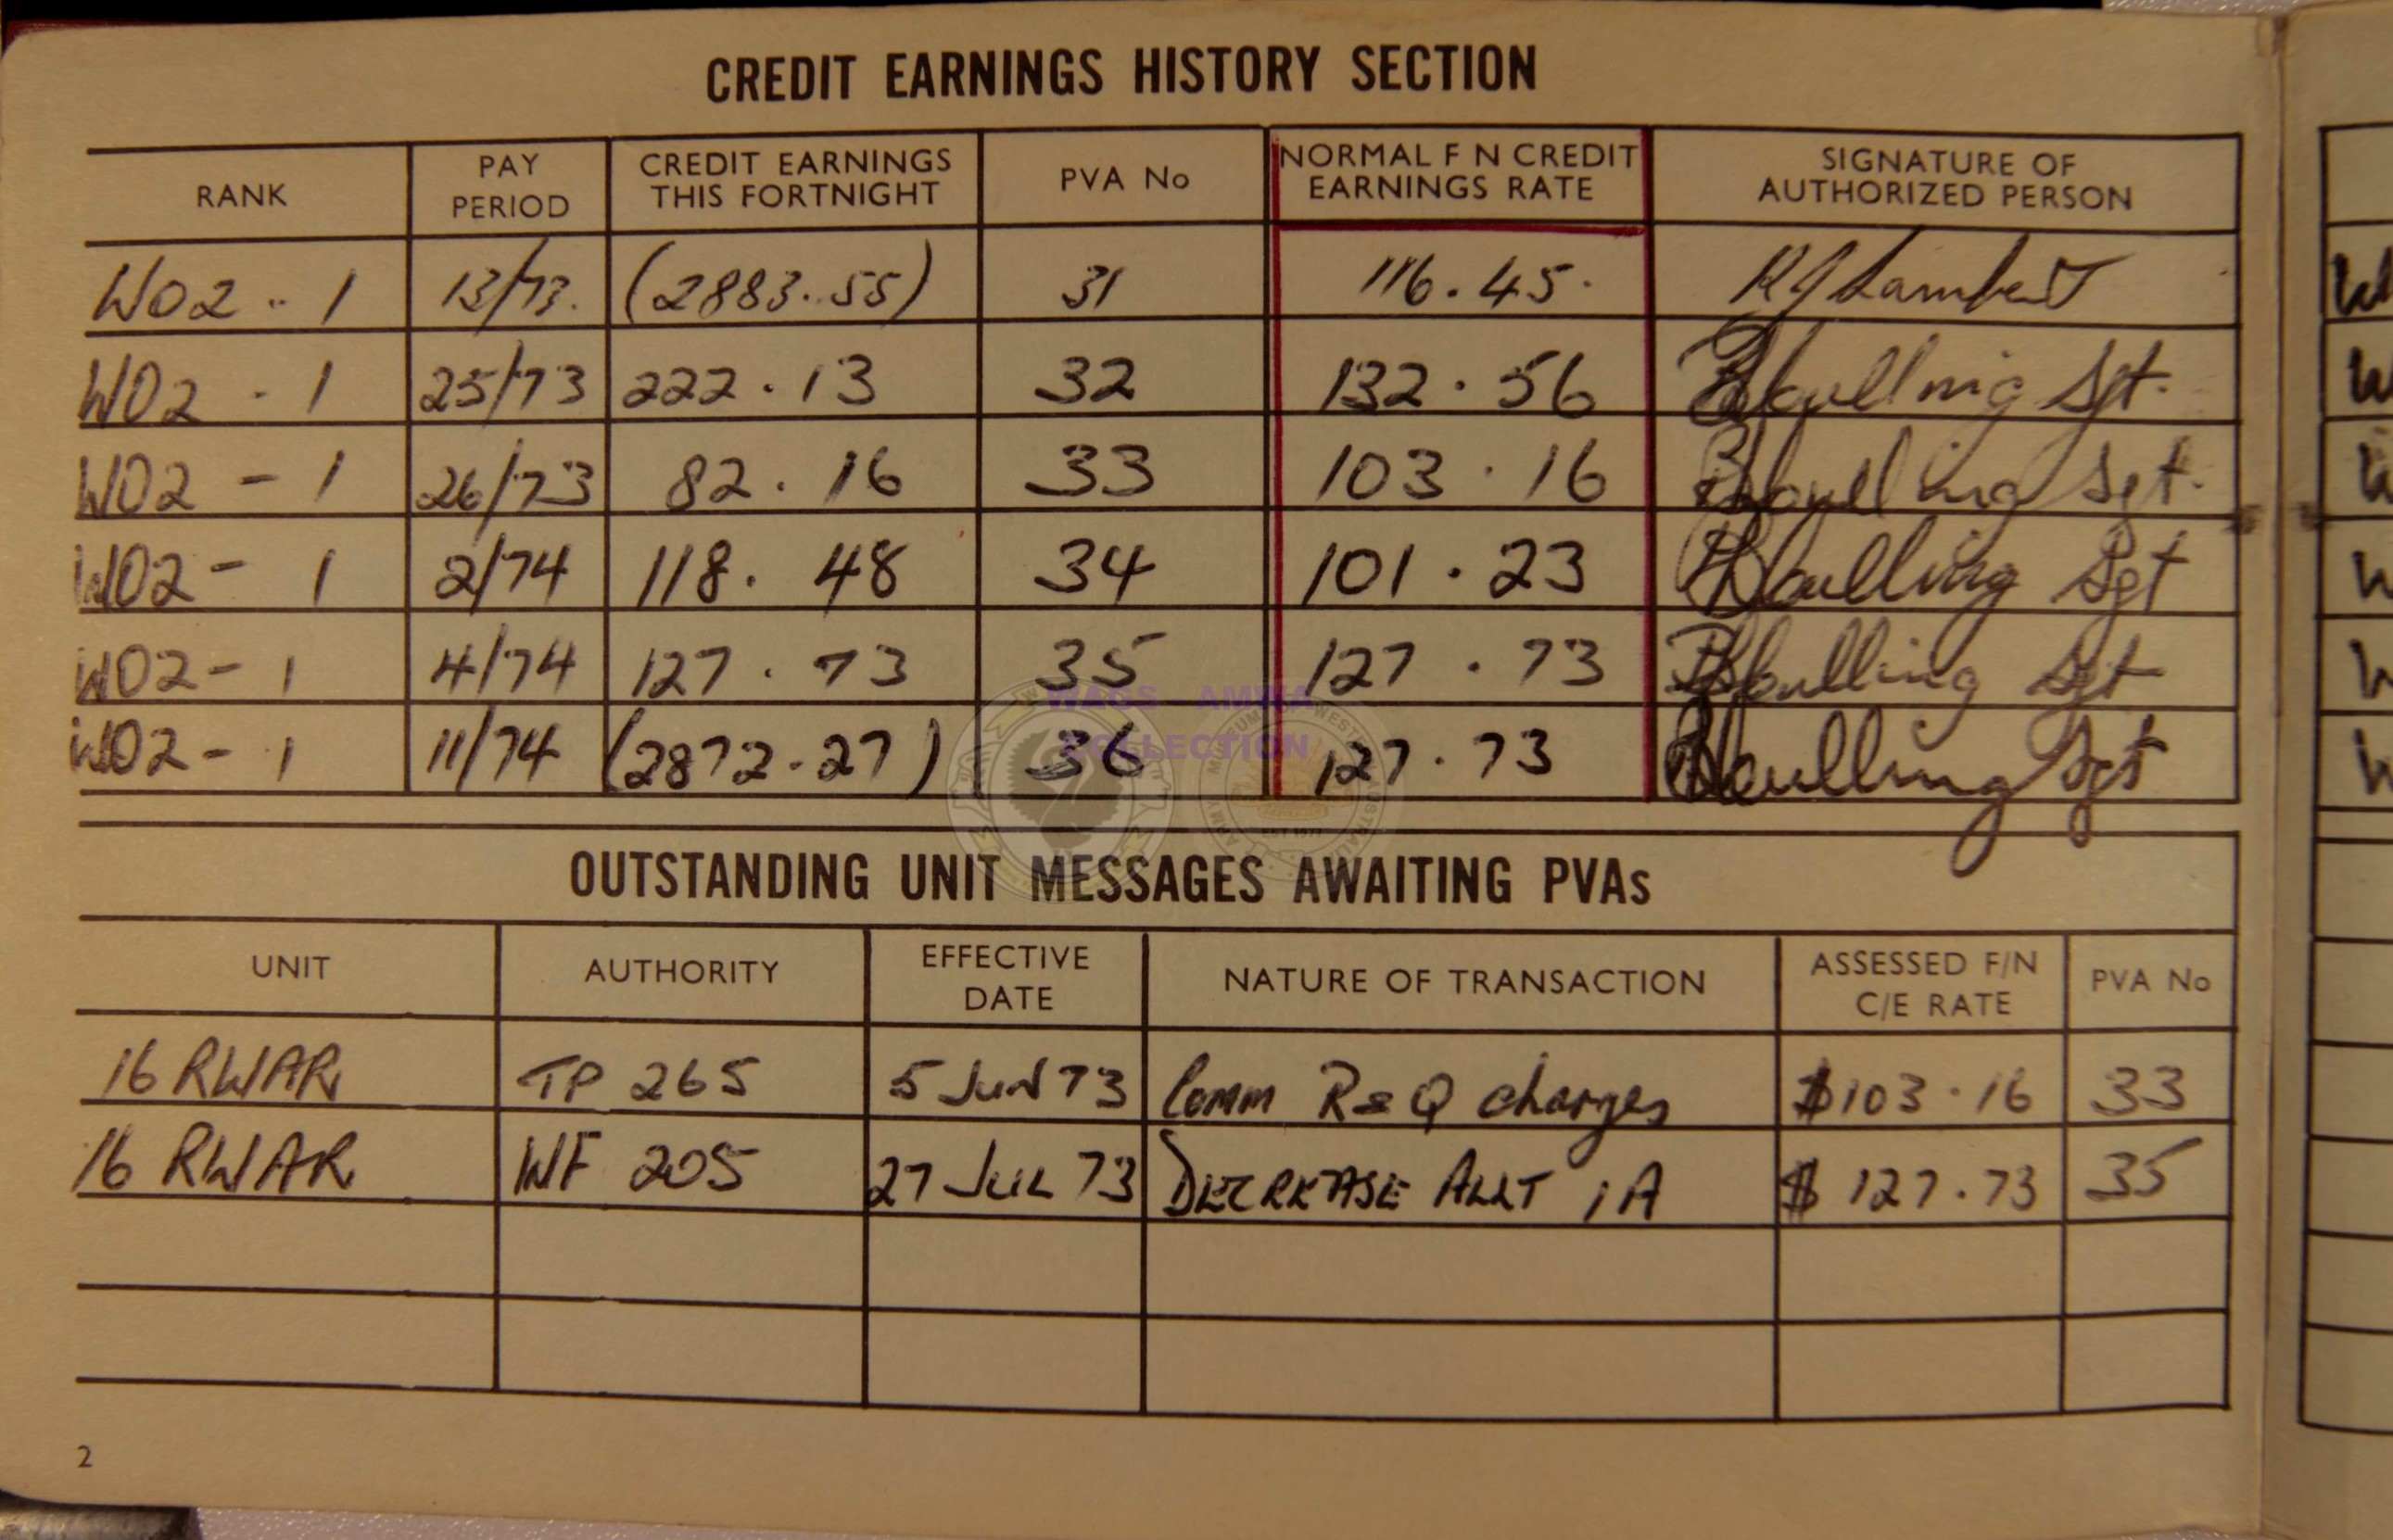 CREDIT EARNINGS HISTORY SECTION
RANK PAY PERIOD CREDIT EARNINGS THIS FORTNIGHT PVA No NORMAL F N CREDIT EARNINGS RATE SIGNATURE OF AUTHORIZED PERSON
WO2 - 1 13/73. (2883.55) 31 116.45. RJ Lambert
WO2 - 1 25/73 222.13 32 132.56 Sgt.
WO2 - 1 26/73 82.16 33 103.16 Sgt.
WO2 - 1 2/74 118.48 34 101.23 Sgt
WO2 - 1 4/74 127.73 35 127.73 Sgt
WO2 - 1 11/74 (2872.27) 36 127.73 Sgt
WAGS - AMWA
COLLECTION
OUTSTANDING UNIT MESSAGES AWAITING PVAs
UNIT AUTHORITY EFFECTIVE DATE NATURE OF TRANSACTION ASSESSED F/N C/E RATE PVA No
16 RWAR TP 265 5 JUN 73 Comm R & Q charges $103.16 33
16 RWAR WF 205 27 JUL 73 DECREASE ALLT 1A $127.73 35
2